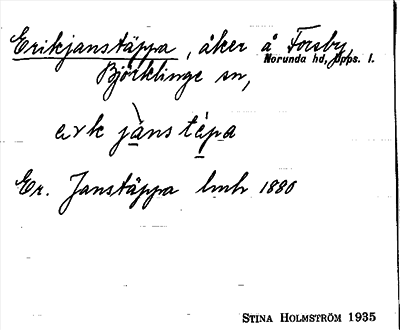 Erikjanstäppa, åker å Forsby,
Norunda hd, Upps. l.
Björklinge sn,
erk jàns tépa
Er. Janstäppa lmh 1880
STINA HOLMSTRÖM 1935